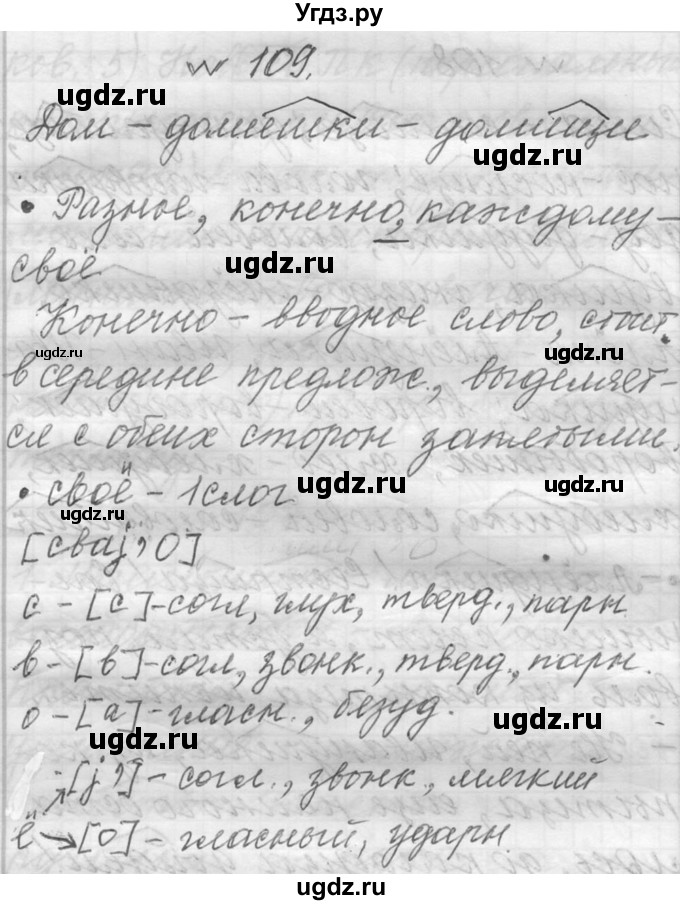 Угдз.ру
№ 109.
Дом – домишки – домищи
• Разное, конечно, каждому –
своё
Конечно – вводное слово, стоит
в середине предлож., выделяет-
ся с обеих сторон запятыми.
• своё – 1 слог
[сваj'О]
с – [с] – согл, глух, тверд., парн.
в – [в] – согл, звонк., тверд., парн.
о – [а] – гласн., безуд.
[j'] – согл., звонк., мягкий
ё → [о] – гласный, ударн.
ugdz.ru
ugdz.ru
ugdz.ru
ugdz.ru
ugdz.ru
ugdz.ru
ugdz.ru
ugdz.ru
ugdz.ru
ugdz.ru
ugdz.ru